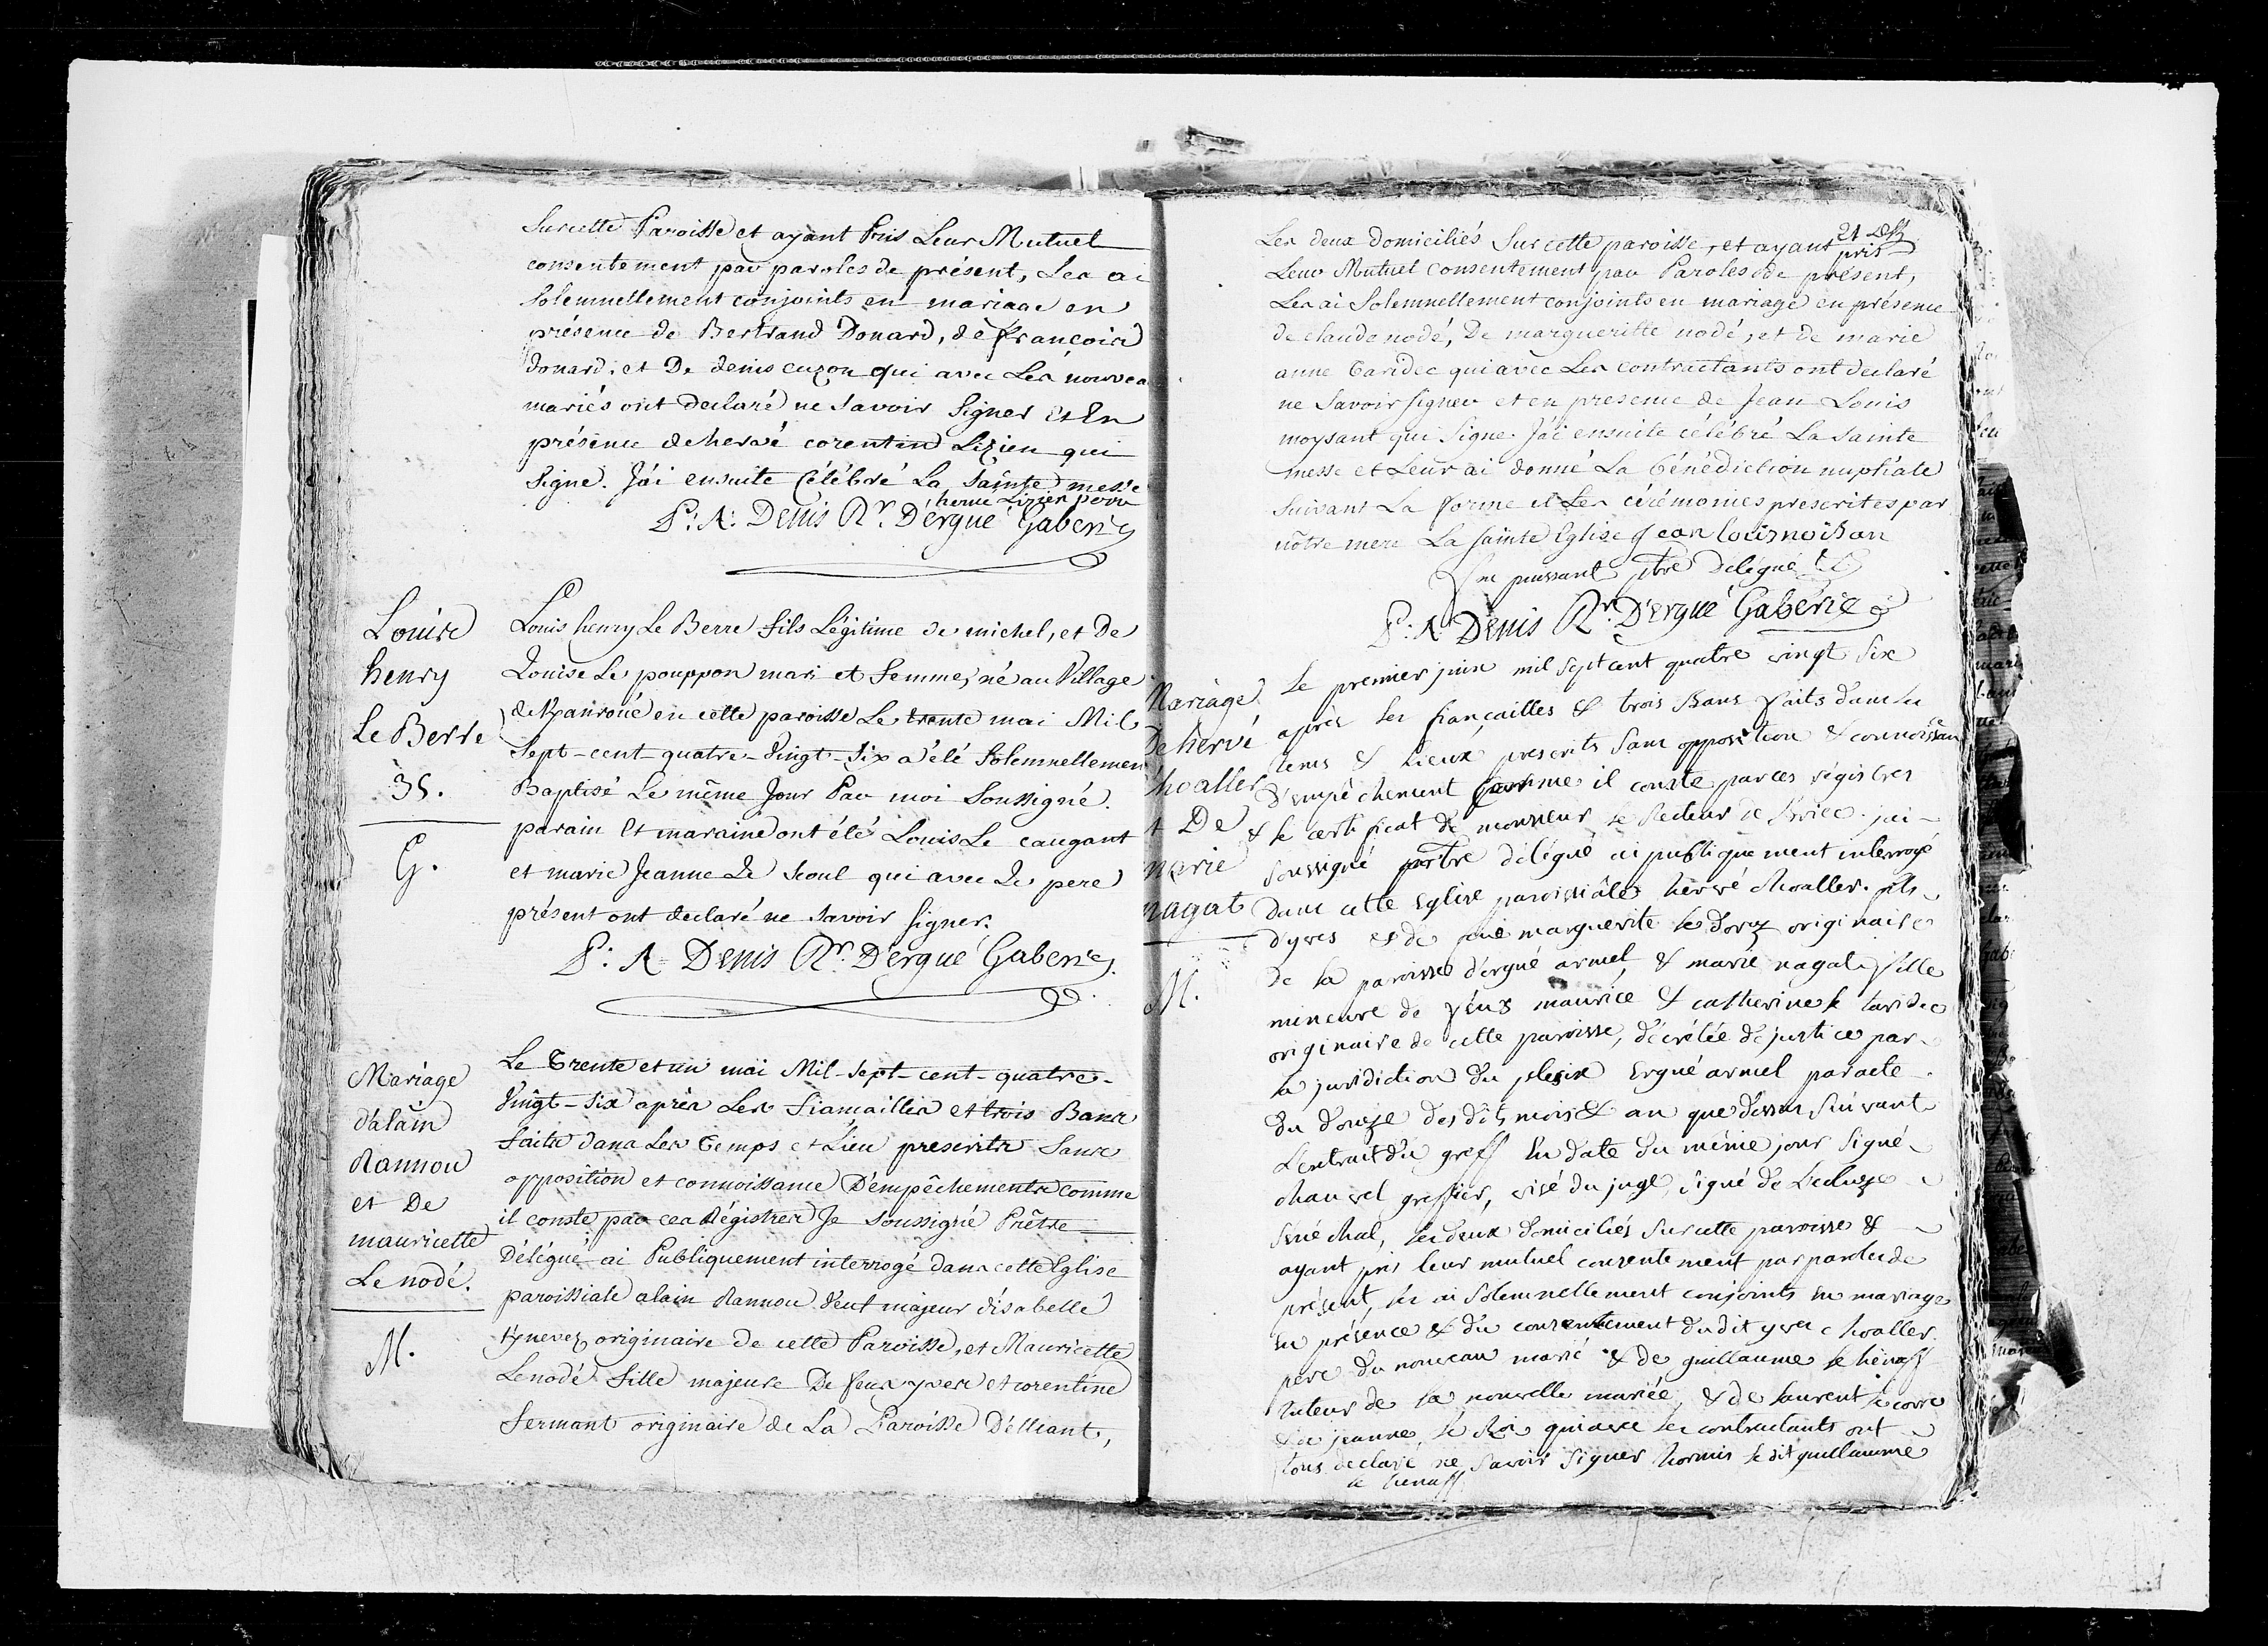 Sur cette Paroisse et ayant Pris Leur Mutuel
consentement par paroles de présent, Les ai
Solemnellement conjoints en mariage en
présence de Bertrand Donard, de françois
donard, et De denis cuzon qui avec Les nouveau
mariés ont declaré ne Savoir Signer Et En
présence de hervé corentin Lizien qui
Signe. J'ai ensuite Célébré La Sainte messe
herve Lizien
P: A: Denis Rr. D'ergué Gaberic
Louis
henry
Le Berre
35.
G.
Louis henry Le Berre fils Légitime de michel, et de
Louise Le pouppon mari et femme, né au Village
en cette paroisse Le trente mai Mil
Sept-cent-quatre-Vingt-Six a été Solemnellement
Baptisé Le même Jour Par moi Soussigné.
parain Et maraine ont été Louis Le caugant
et marie Jeanne Le Seoul qui avec Le pere
présent ont declaré ne Savoir Signer.
P: A Denis Rr. D'ergué Gaberic
Mariage
d'alain
Rannou
et De
mauricette
Le nodé.
M.
Le Trente et un mai Mil-Sept-cent-quatre-
Vingt-Six après Les fiançailles et trois Bans
faits dans Les Temps et Lieu prescrits Sans
opposition et connoissance D'empêchements comme
il conste par ces Régistres Je Soussigné Prêtre
Délégué ai Publiquement interrogé dans cette Eglise
paroissiale alain Rannou Veuf majeur d'isabelle
tynevez originaire de cette Paroisse, et Mauricette
Le nodé fille majeure De feux yves et corentine
Sermant originaire de La Paroisse D'elliant,
21
Les deux domiciliés Sur cette paroisse, et ayant pris
Leur Mutuel consentement par Paroles de présent,
Les ai Solemnellement conjoints en mariage en présence
de claude nodé, De margueritte nodé, et de marie
anne Taridec qui avec Les contractants ont declaré
ne Savoir signer et en presence de Jean Louis
moysant qui Signe. J'ai ensuite célébré La Sainte
messe et Leur ai donné La bénédiction nuptiale
Suivant La forme et Les cérémonies prescrites par
nôtre mere La sainte Eglise
puissant ptre délégué
P: A: Denis Rr. D'ergué Gaberic
Mariage
De hervé
choaller
et De
marie
nagat
M.
Le premier juin mil sept cent quatre vingt Six
après les fiançailles & trois Bans faits dans les
tems & Lieux prescrits Sans opposition & connoissance
D'empêchement comme il conste par ces régistres
& le certificat de monsieur le Recteur de Briec. j'ai
Soussigné prêtre délégué ai publiquement interrogé
dans cette Eglise paroissiâle hervé choaller fils
d'yves & de marguerite le dorz originaire
De la paroisse d'ergué armel, & marie nagat fille
mineure de feus maurice & catherine le taridec
originaire de cette paroisse, décrétée de justice par
la juridiction du plessix Ergué armel par acte
du Douze des dits mois & an que dessus Suivant
L'extrait du greff En date du même jour Signé
chauvel greffier, visé du juge, Signé de Lecluze
Sénéchal, les deux domiciliés Sur cette paroisse &
ayant pris leur mutuel consentement par paroles de
présent, les ai Solemnellement conjoints en mariage
en présence & du consentement du dit yves choaller
pere du nouveau marié & de guillaume le hénaff
tuteur de la nouvelle mariée, & de laurent le corre
& de jeanne le Roi qui avec les contractants ont
tous declaré ne Savoir Signer hormis le dit guillaume
le henaff